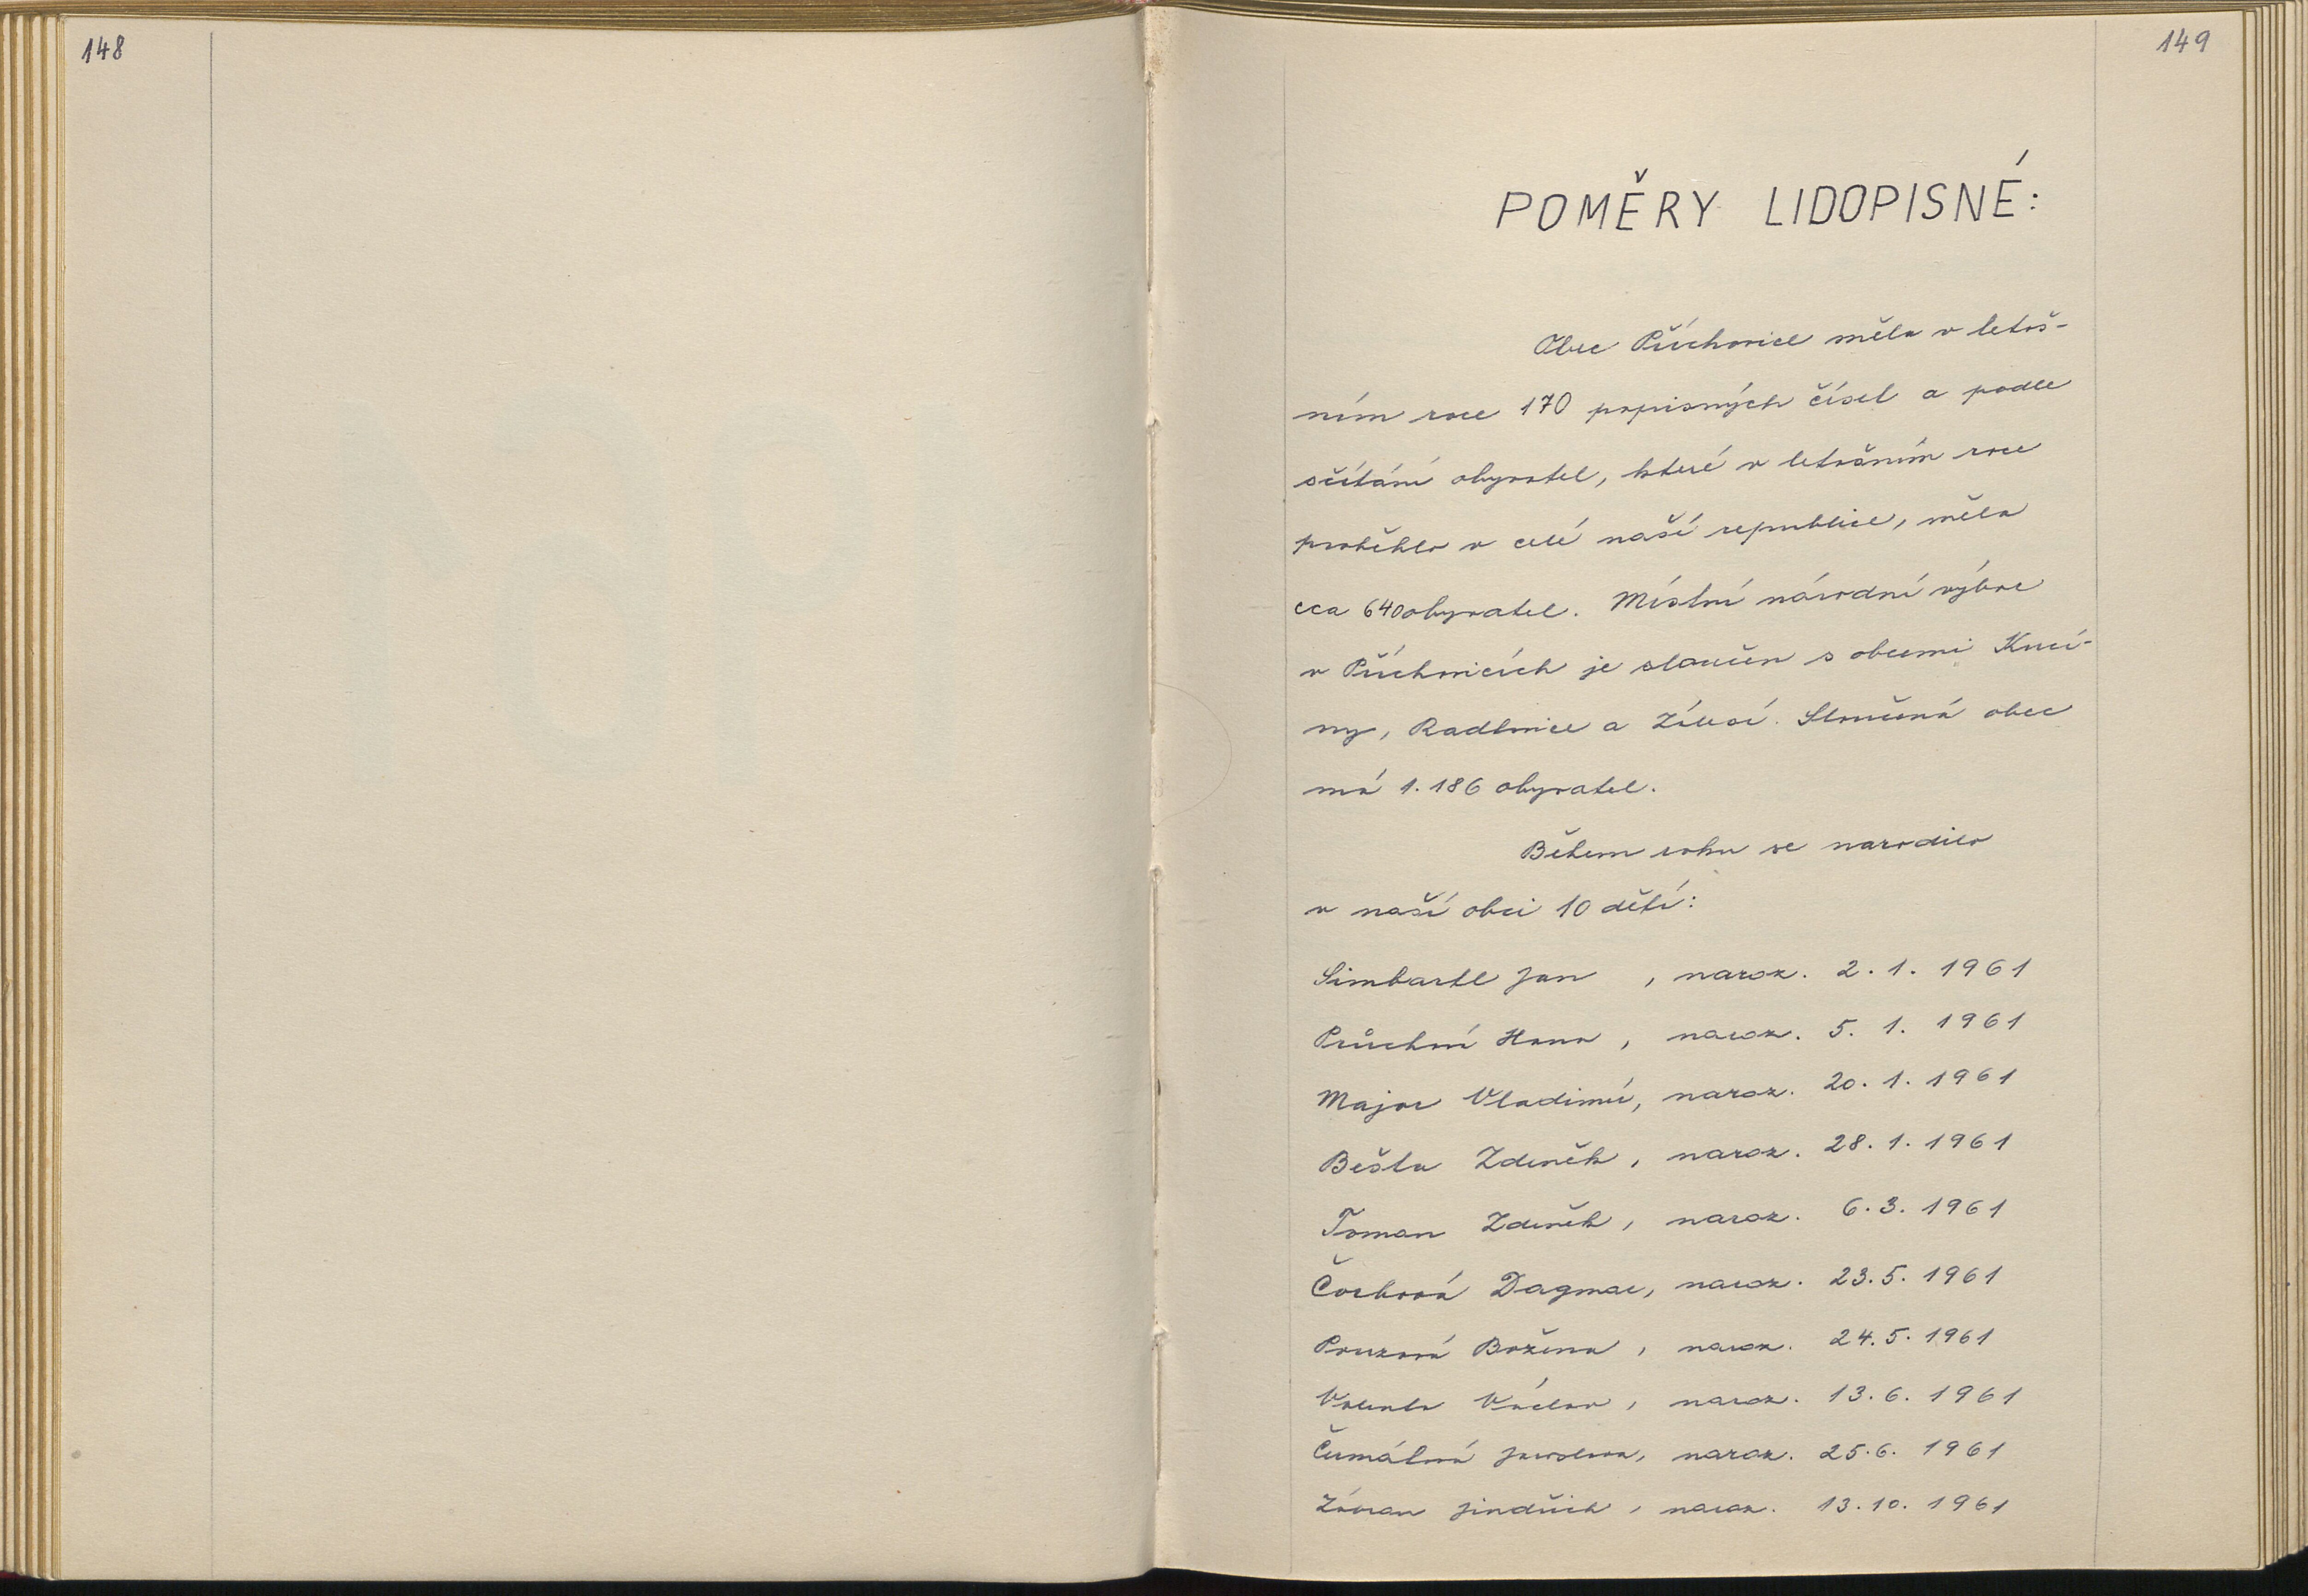 148
149
POMĚRY LIDOPISNÉ:
Obec Příchovice měla v letoš-
ním roce 170 popisných čísel a podle
sčítání obyvatel, které v letošním roce
proběhlo v celé naší republice, měla
cca 640 obyvatel. Místní národní výbor
v Příchovicích je sloučen s obcemi Kucí-
ny, Radkovice a Zálesí. Sloučená obec
má 1.186 obyvatel.
Během roku se narodilo
v naší obci 10 dětí:
Simbartl Jan , naroz. 2. 1. 1961
Průchní Hana , naroz. 5. 1. 1961
Major Vladimír, naroz. 20. 1. 1961
Bešta Zdeněk , naroz. 28. 1. 1961
Toman Zdeněk , naroz. 6. 3. 1961
Dagmar, naroz. 23. 5. 1961
Pouzová Božena , naroz. 24. 5. 1961
Valenta Václav , naroz. 13. 6. 1961
Jaroslava, naroz. 25. 6. 1961
Jindřich , naroz. 13. 10. 1961